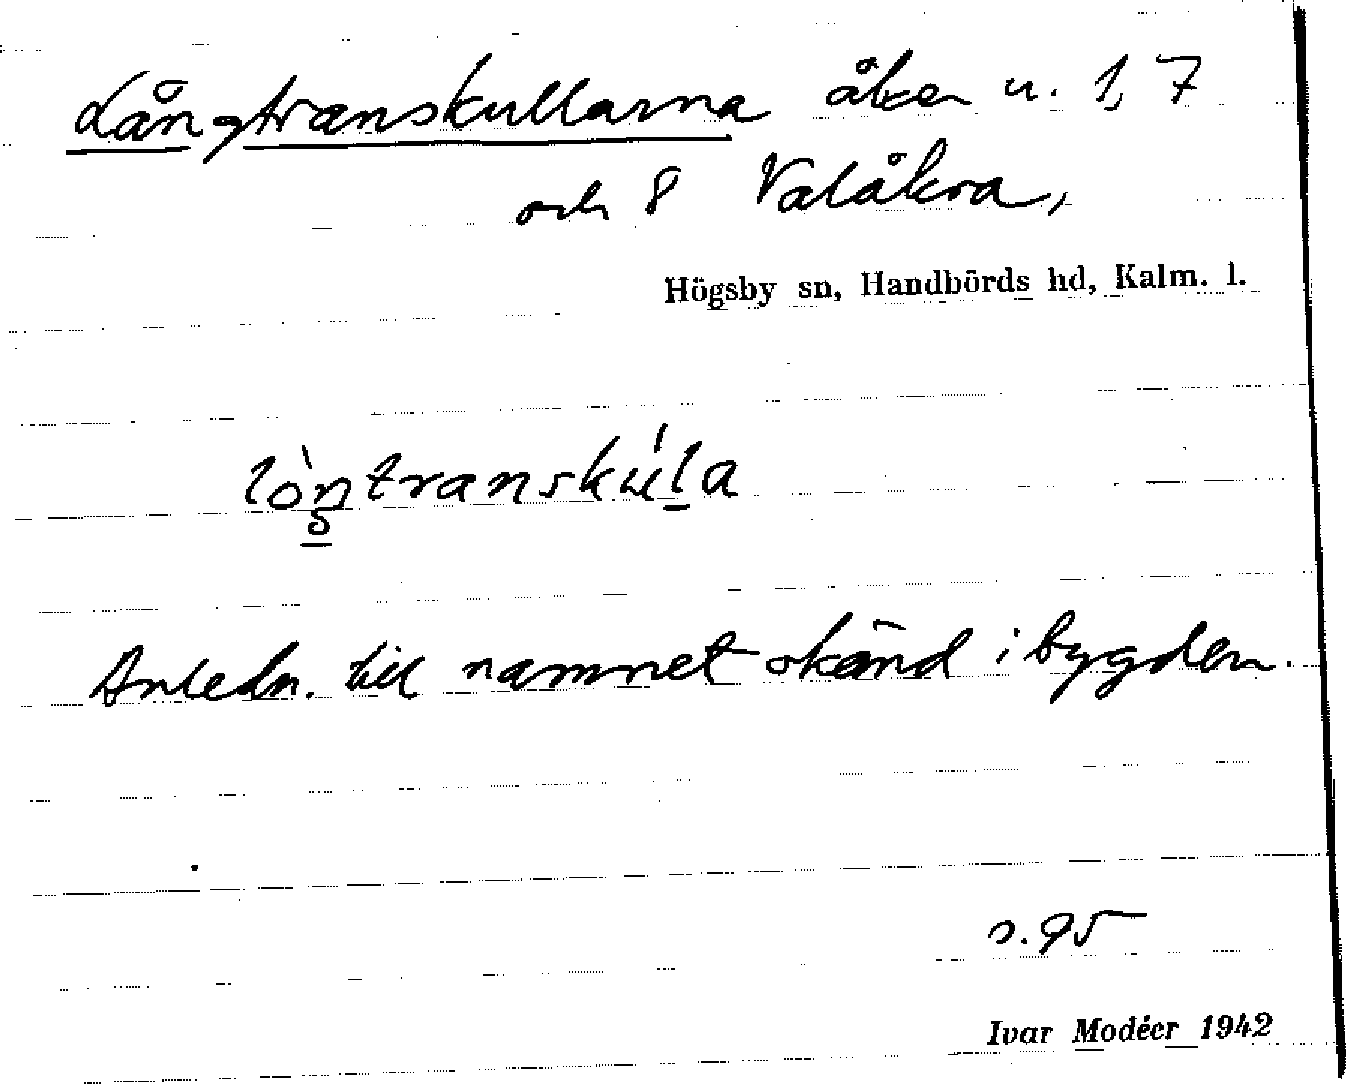 Långtranskullarna åker u. 1, 7
och 8 Valåkra,
Högsby sn, Handbörds hd, Kalm. l.
lòŋtranskúla
Anledn. till namnet okänd i bygden.
s. 95
Ivar Modéer 1942